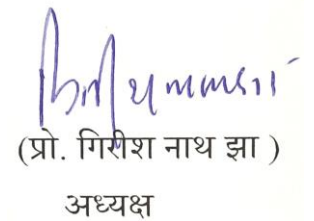 (प्रो. गिरीश नाथ झा )
अध्यक्ष